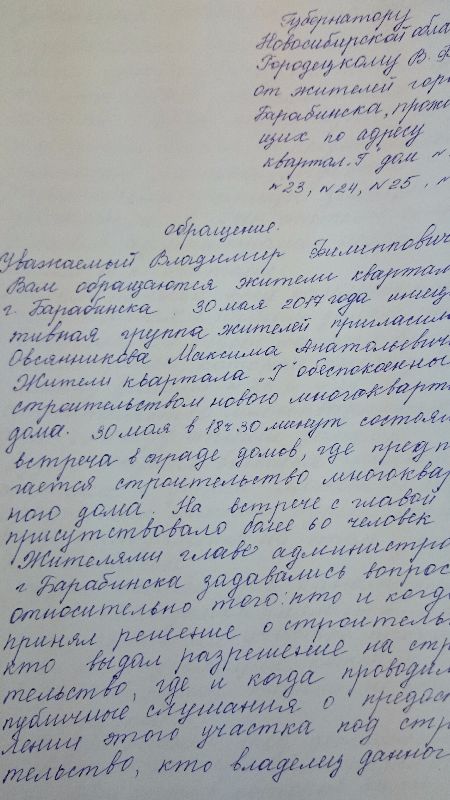 Губернатору
Новосибирской обла
Городецкому В. Ф
от жителей горо
Барабинска, прожи
щих по адресу
квартал „Г" дом №
№23, №24, №25, №
обращение.
Уважаемый Владимир Филиппович
Вам обращаются жители квартал
г. Барабинска. 30 мая 2017 года иници
тивная группа жителей пригласил
Овсянникова Максима Анатольевич
Жители квартала „Г" обеспокоенны
строительством нового многокварт
дома. 30 мая в 18ч 30 минут состоял
встреча в ограде домов, где предп
гается строительство многоквар
ного дома. На встрече с главой
присутствовало более 60 человек
Жителями главе администра
г Барабинска задавались вопрос
относительно того: кто и когда
принял решение о строитель
кто выдал разрешение на стр
тельство, где и когда проводил
публичные слушания о предост
лении этого участка под стр
тельство, кто владелец данног